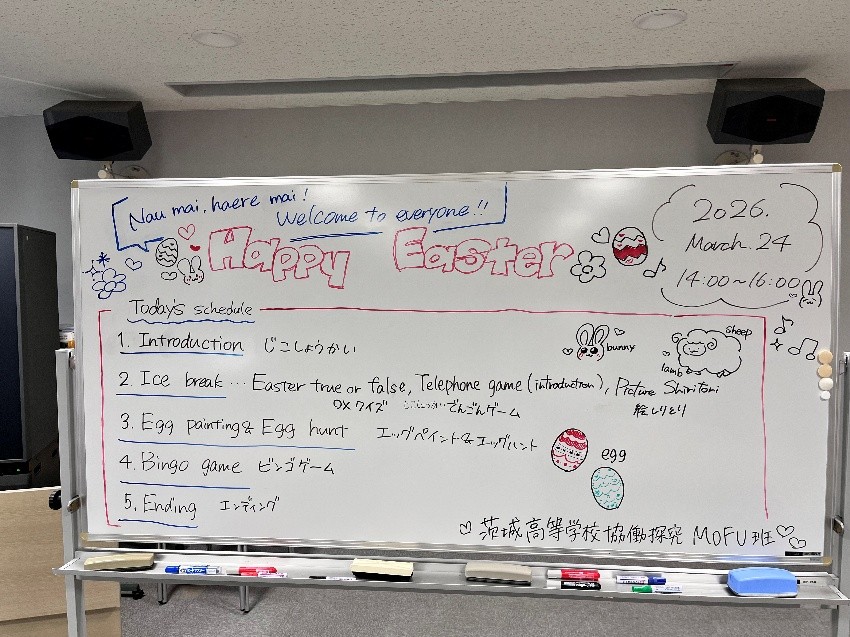 Nau mai, haere mai!
Welcome to everyone!!
Happy Easter
2026.
March. 24
14:00～16:00
Today's schedule
1. Introduction じこしょうかい
bunny
sheep
lamb
2. Ice break … Easter true or false, Telephone game (introduction), Picture Shiritori
OXクイズ でんごんゲーム 絵しりとり
3. Egg painting & Egg hunt エッグペイント&エッグハント
egg
4. Bingo game ビンゴゲーム
5. Ending エンディング
茨城高等学校 協働探究 MOFU班